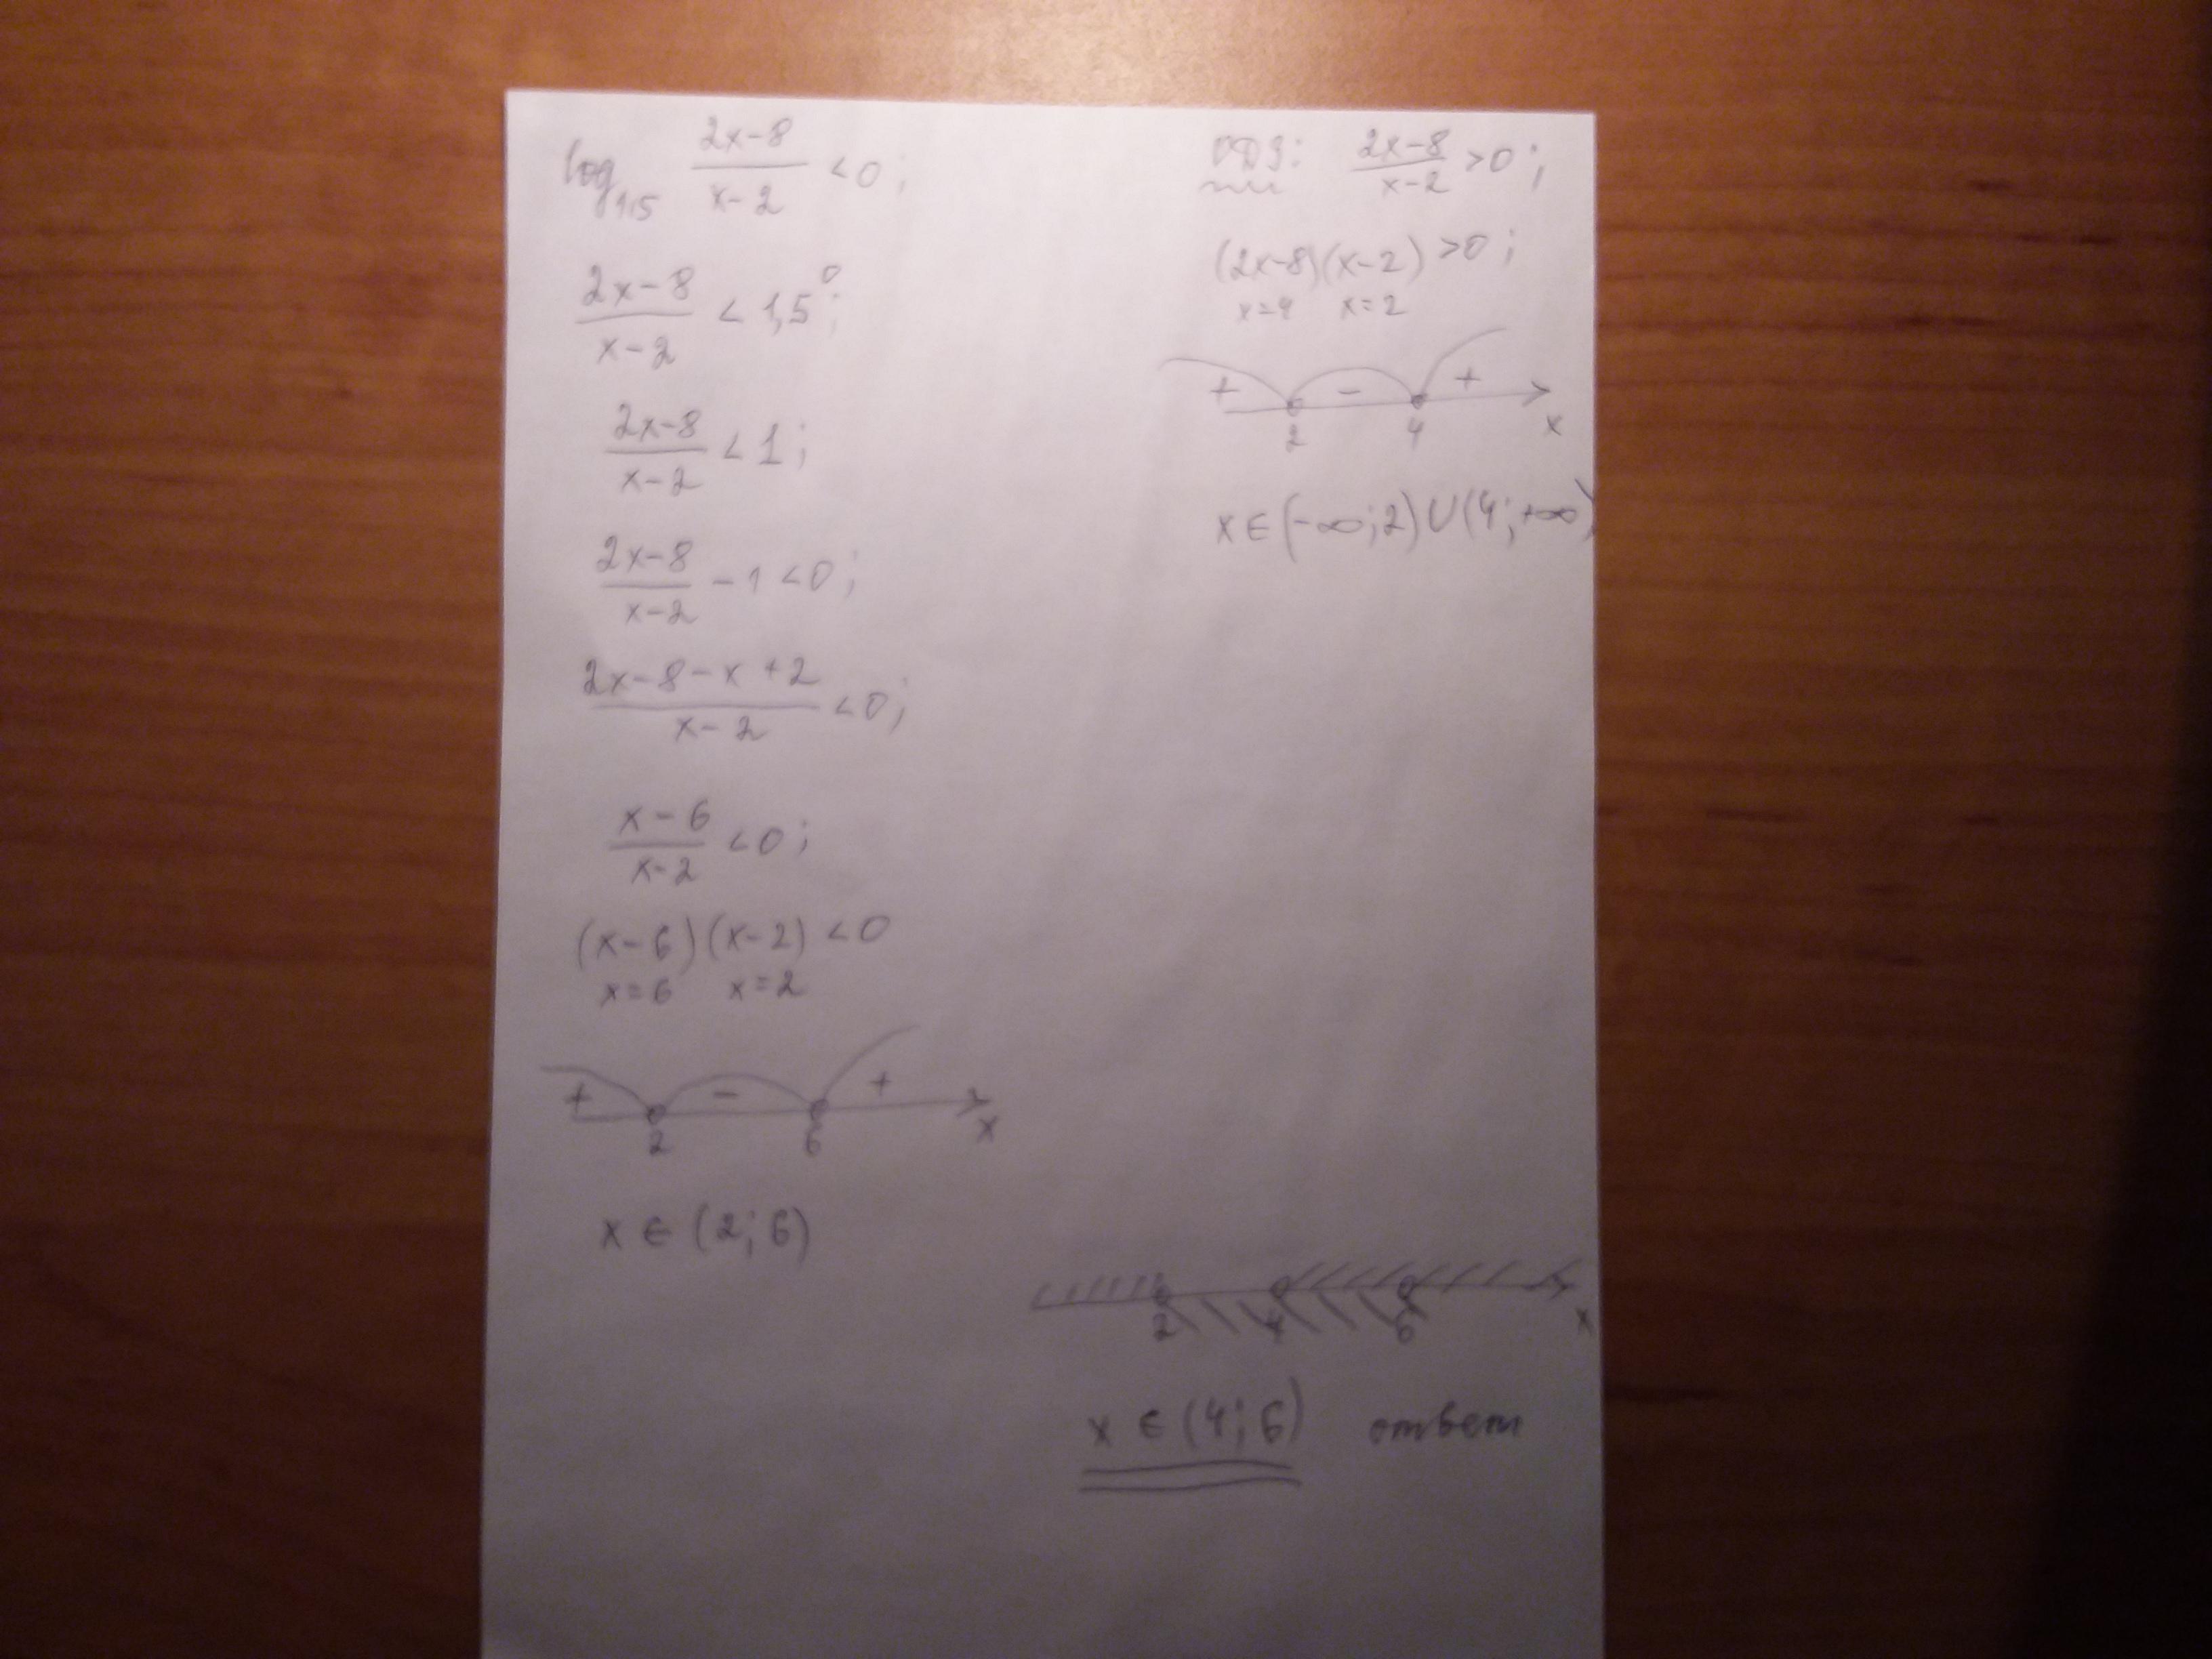 log₁,₅ (2x-8)/(x-2) < 0;
(2x-8)/(x-2) < 1,5⁰;
(2x-8)/(x-2) < 1;
(2x-8)/(x-2) - 1 < 0;
(2x-8-x+2)/(x-2) < 0;
(x-6)/(x-2) < 0;
(x-6)(x-2) < 0
x=6 x=2
+ - +
2 6 x
x ∈ (2; 6)
ОДЗ: (2x-8)/(x-2) > 0;
(2x-8)(x-2) > 0;
x=4 x=2
+ - +
2 4 x
x ∈ (-∞; 2) ∪ (4; +∞)
2 4 6 x
x ∈ (4; 6) ответ